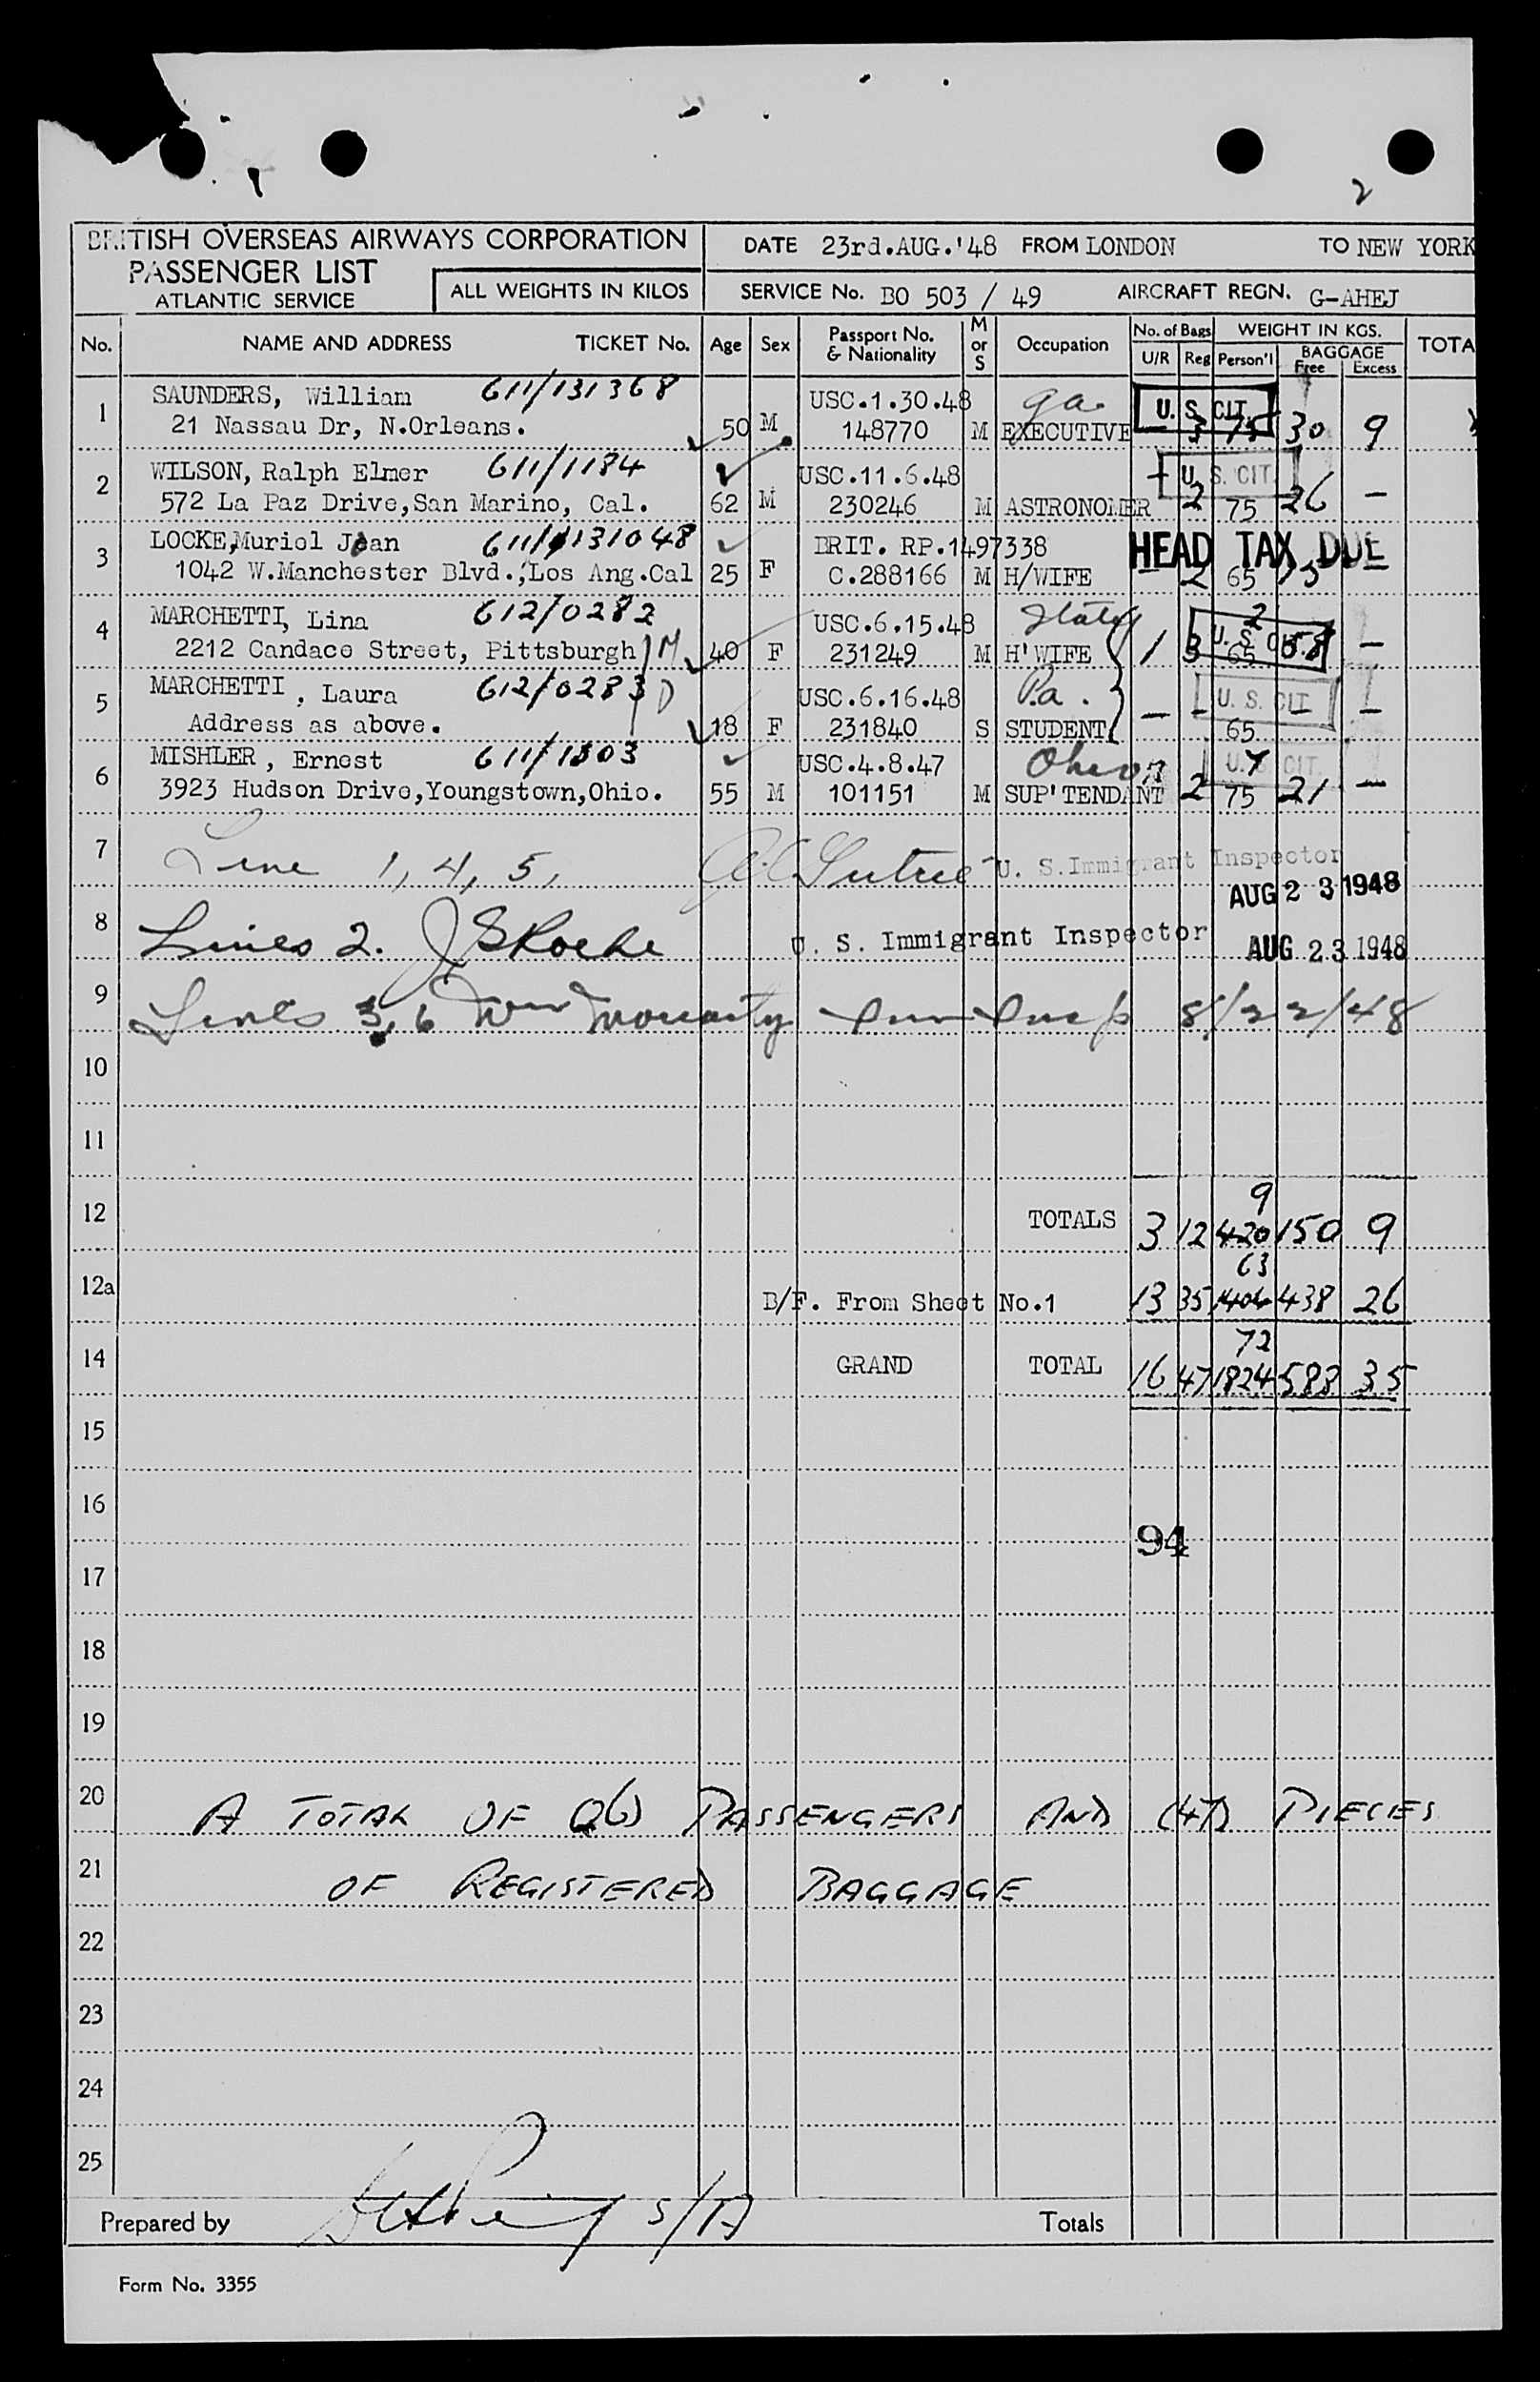 2
BRITISH OVERSEAS AIRWAYS CORPORATION
PASSENGER LIST
ATLANTIC SERVICE
ALL WEIGHTS IN KILOS
DATE 23rd.AUG.'48 FROM LONDON TO NEW YORK
SERVICE No. BO 503 / 49 AIRCRAFT REGN. G-AHEJ
No. NAME AND ADDRESS TICKET No. Age Sex Passport No. & Nationality M or S Occupation No. of Bags U/R Reg WEIGHT IN KGS. Person'l BAGGAGE Free Excess TOTA
1 SAUNDERS, William 611/131368 USC.1.30.48 Ga. U. S. CIT.
21 Nassau Dr, N.Orleans. 50 M 148770 M EXECUTIVE — 3 75 30 9
2 WILSON, Ralph Elmer 611/1184 USC.11.6.48 U. S. CIT.
572 La Paz Drive,San Marino, Cal. 62 M 230246 M ASTRONOMER 2 75 26 —
3 LOCKE,Muriel Jean 611/131048 BRIT. RP.1497338 HEAD TAX DUE
1042 W.Manchester Blvd.,Los Ang.Cal 25 F C.288166 M H/WIFE — 2 65 15 —
4 MARCHETTI, Lina 612/0282 USC.6.15.48 State 2 U. S. CIT.
2212 Candace Street, Pittsburgh M 40 F 231249 M H'WIFE 1 3 65 58 —
5 MARCHETTI, Laura 612/0283 D USC.6.16.48 Pa. U. S. CIT.
Address as above. 18 F 231840 S STUDENT — - 65 — —
6 MISHLER, Ernest 611/1303 USC.4.8.47 Ohio 7 U. S. CIT.
3923 Hudson Drive,Youngstown,Ohio. 55 M 101151 M SUP'TENDANT 2 75 21 —
7 Line 1, 4, 5, U. S. Immigrant Inspector
AUG 23 1948
8 Lines 2. J S Roche U. S. Immigrant Inspector AUG 23 1948
9 Lines 3, 6 Wm Moriarty Imm Insp 8/22/48
10
11
9
12 TOTALS 3 12 420 150 9
63
12a B/F. From Sheet No.1 13 35 1404 438 26
72
14 GRAND TOTAL 16 47 1824 588 35
15
16
94
17
18
19
20 A TOTAL OF (26) PASSENGERS AND (47) PIECES
21 OF REGISTERED BAGGAGE
22
23
24
25
Prepared by S/A Totals
Form No. 3355